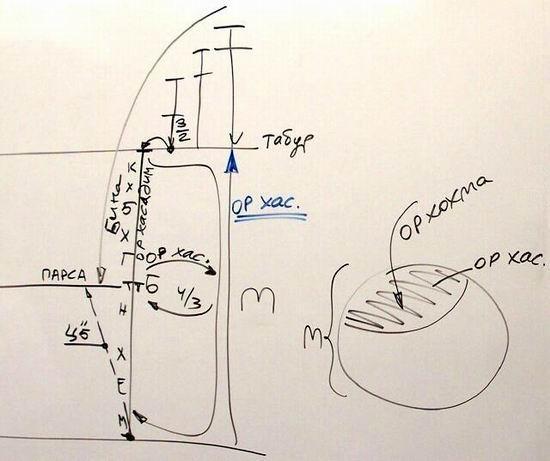 3/2
Табур
к
х
х
б
х
г
т
н
х
Е
м
Бина
ор хасадим
ор хас.
ор хас.
ПАРСА
Б
4/3
М
ЦБ
ор хохма
ор хас.
М